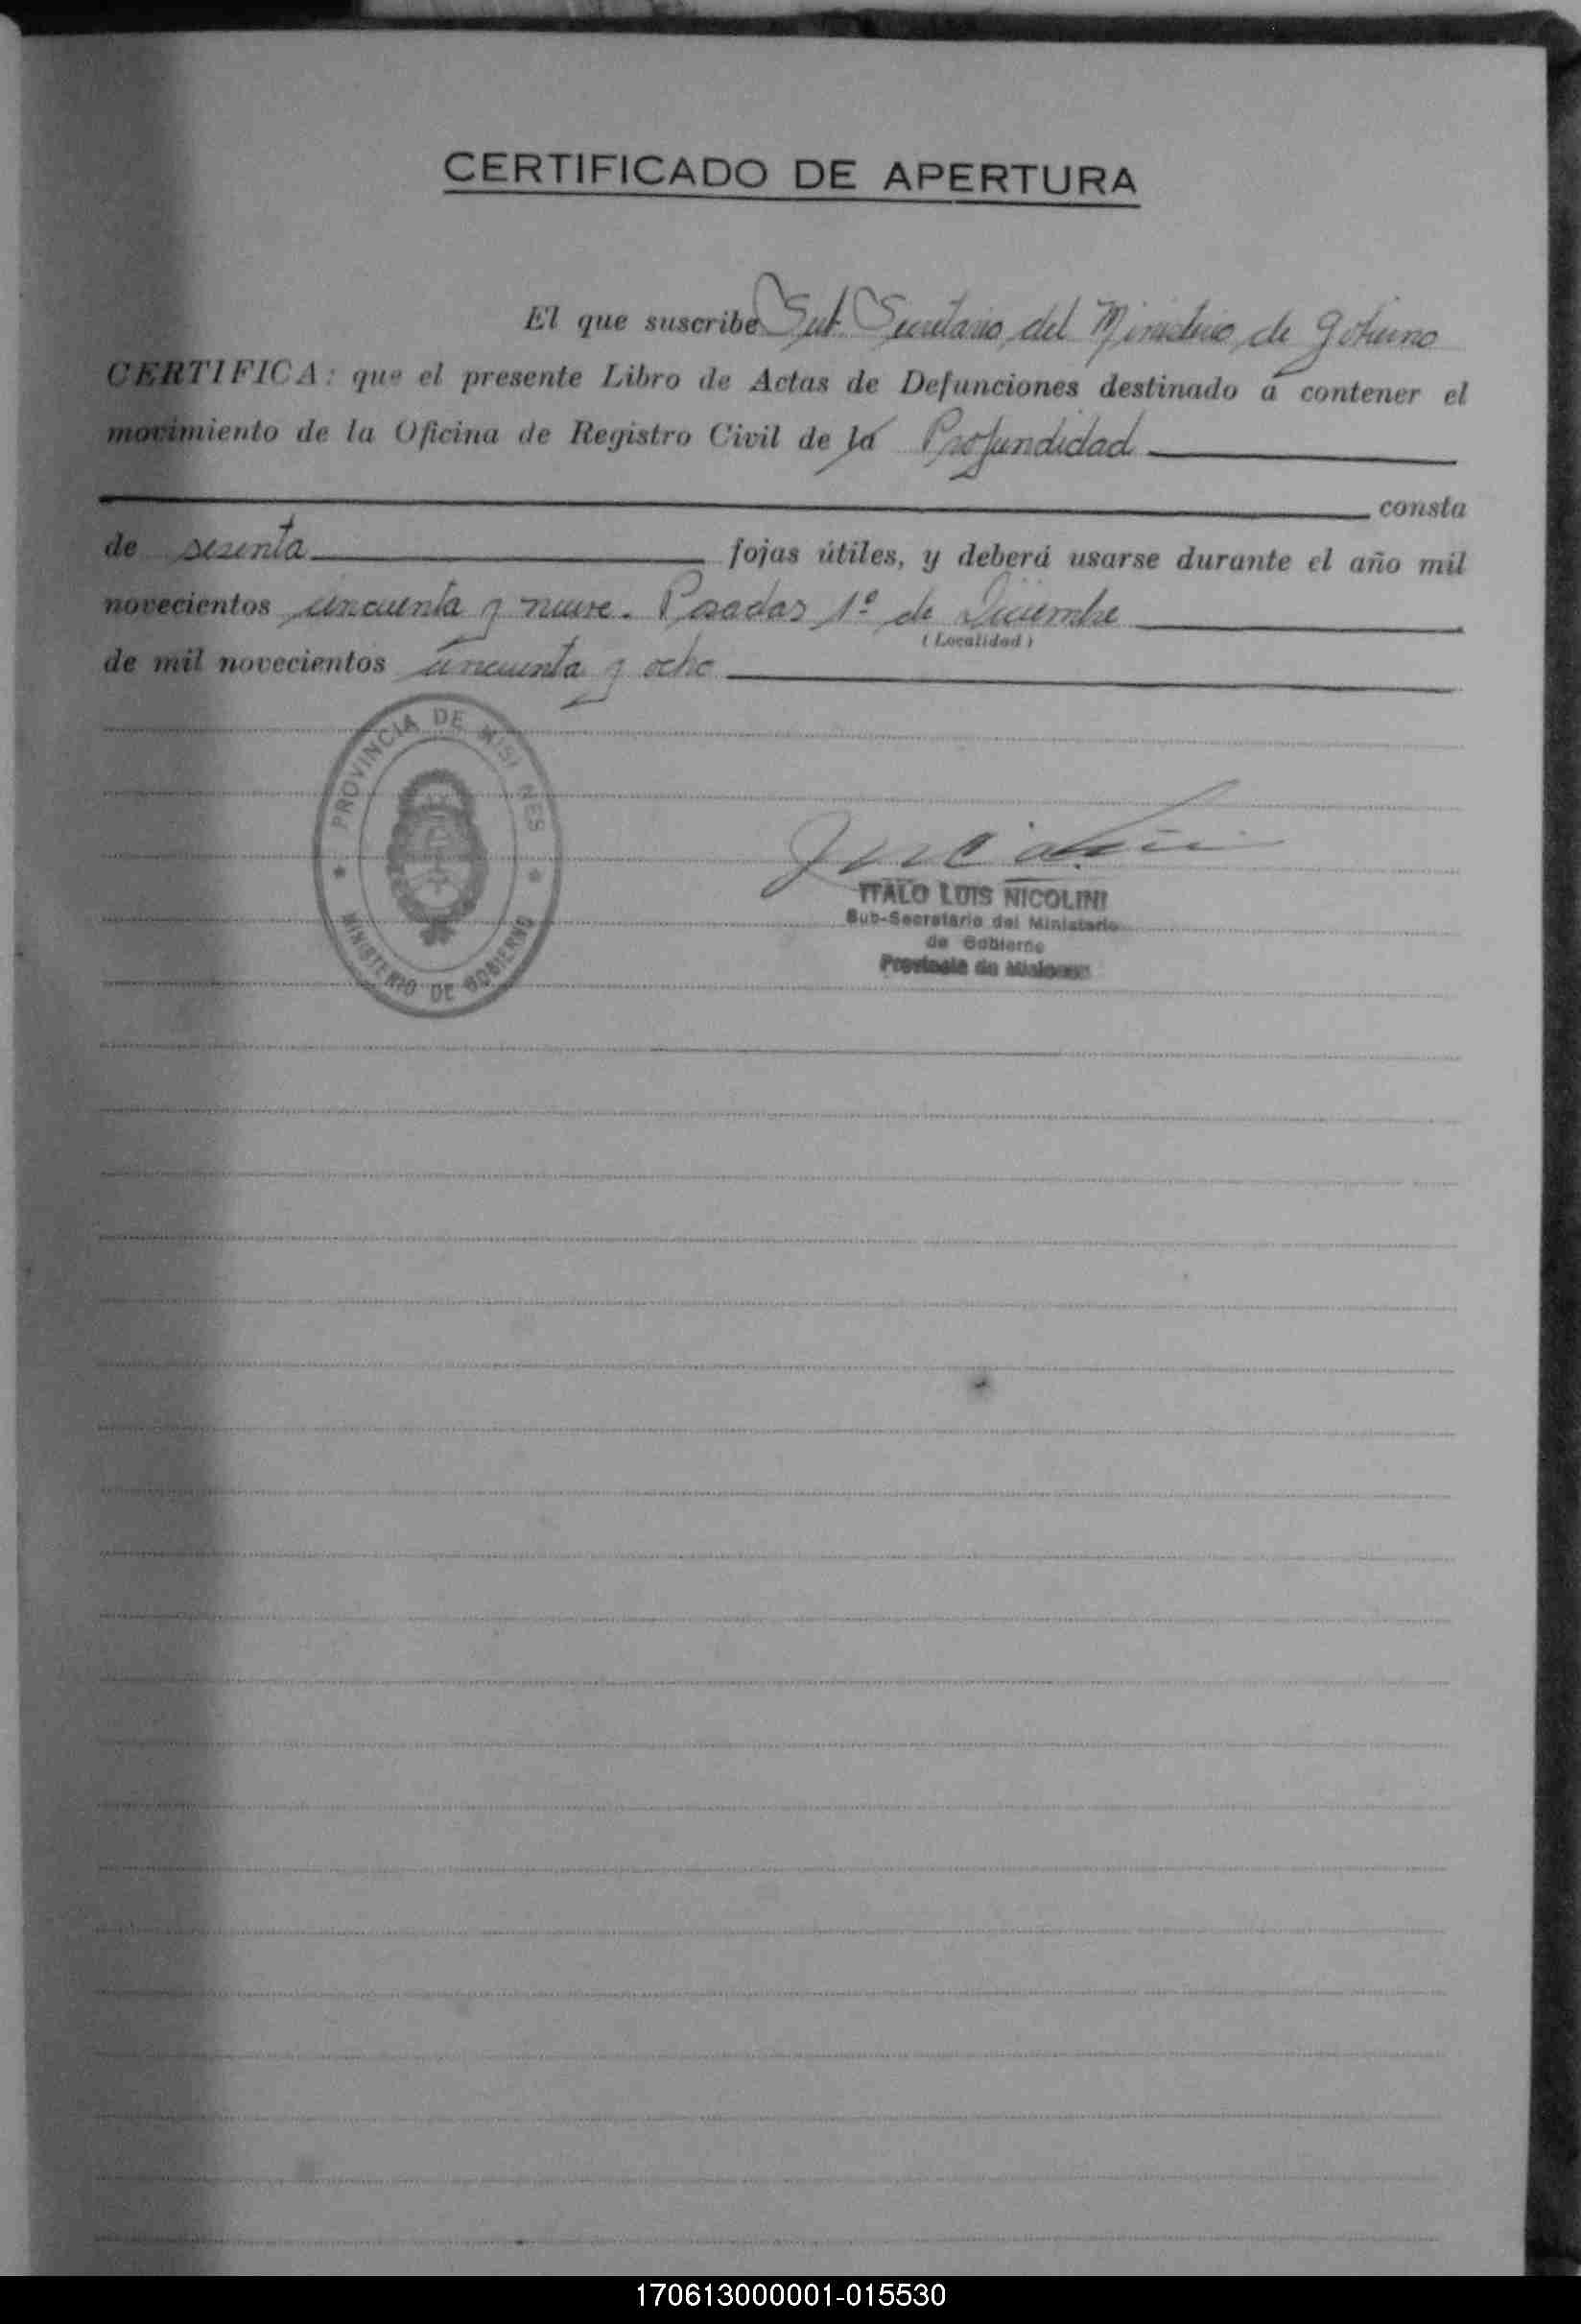 CERTIFICADO DE APERTURA
El que suscribe Sub Secretario del Ministerio de Gobierno
CERTIFICA: que el presente Libro de Actas de Defunciones destinado a contener el
movimiento de la Oficina de Registro Civil de la Profundidad
consta
de sesenta fojas útiles, y deberá usarse durante el año mil
novecientos cincuenta y nueve. Posadas 1º de Diciembre
(Localidad)
de mil novecientos cincuenta y ocho
PROVINCIA DE MISIONES
MINISTERIO DE GOBIERNO
ITALO LUIS NICOLINI
Sub-Secretario del Ministerio
de Gobierno
Provincia de Misiones
170613000001-015530